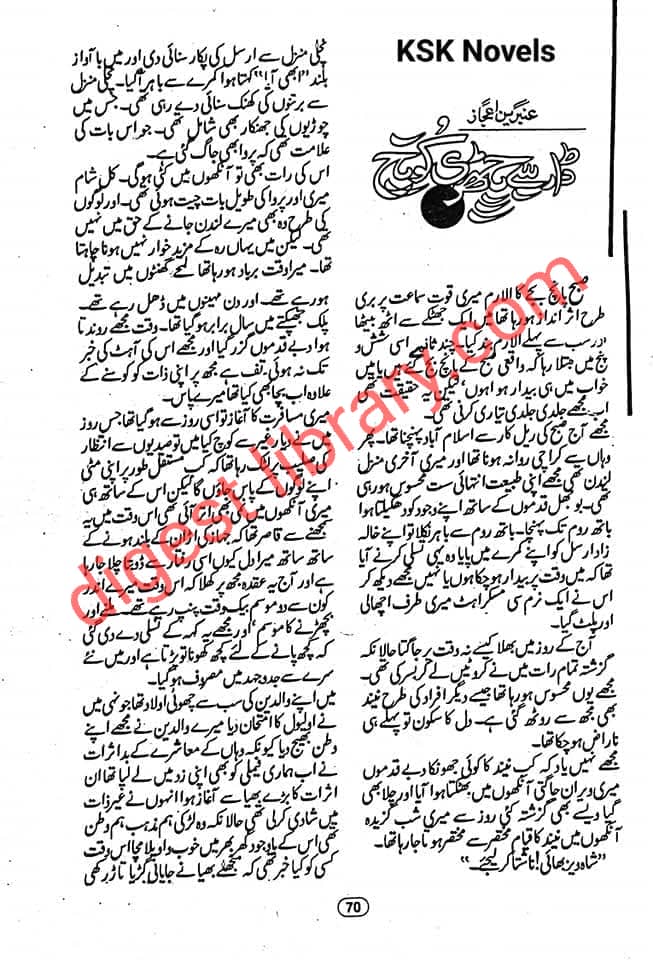 KSK Novels
عنبرین اعجاز
ڈار سے بچھڑی کونج
صبح پانچ بجے کا الارم میری قوت سماعت پر بری
طرح اثر انداز ہو رہا تھا میں ایک جھٹکے سے اٹھ بیٹھا
اور سب سے پہلے الارم بند کیا۔ چند ثانیے اسی شش و
پنج میں مبتلا رہا کہ واقعی صبح کے پانچ بج گئے ہیں یا میں
خواب میں ہی بیدار ہوا ہوں' لیکن یہ حقیقت تھی
اب مجھے جلدی جلدی تیاری کرنی تھی۔
مجھے آج صبح کی ریل کار سے اسلام آباد پہنچنا تھا۔ پھر
وہاں سے کراچی روانہ ہونا تھا اور میری آخری منزل
لندن تھی مجھے اپنی طبیعت انتہائی ست محسوس ہو رہی
تھی۔ بوجھل قدموں کے ساتھ اپنے وجود کو دھکیلتا ہوا
باتھ روم تک پہنچا۔ باتھ روم سے باہر نکلا تو اپنے خالہ
زاد ارسل کو اپنے کمرے میں پایا وہ یہی تسلی کرنے آیا
تھا کہ میں وقت پر بیدار ہو چکا ہوں یا نہیں مجھے دیکھ کر
اس نے ایک نرم سی مسکراہٹ میری طرف اچھالی
اور پلٹ گیا۔
آج کے روز میں بھلا کیسے نہ وقت پر جاگتا حالانکہ
گزشتہ تمام رات میں نے کروٹیں لے کر بسر کی تھی۔
مجھے یوں محسوس ہو رہا تھا جیسے دیگر افراد کی طرح نیند
بھی مجھ سے روٹھ گئی ہے۔ دل کا سکون تو پہلے ہی
ناراض ہو چکا تھا۔
مجھے نہیں یاد کہ کب نیند کا کوئی جھونکا دبے قدموں
میری ویران جاگتی آنکھوں میں بھٹکتا ہوا آیا اور چلا بھی
گیا ویسے بھی گزشتہ کئی روز سے میری شب گزیدہ
آنکھوں میں نیند کا قیام مختصر سے مختصر ہوتا جا رہا تھا۔
"شاہ ویز بھائی! ناشتا کر لیجئے۔"
نچلی منزل سے ارسل کی پکار سنائی دی اور میں با آواز
بلند "ابھی آیا" کہتا ہوا کمرے سے باہر آگیا۔ نچلی منزل
سے برتنوں کی کھنک سنائی دے رہی تھی۔ جس میں
چوڑیوں کی جھنکار بھی شامل تھی۔ جو اس بات کی
علامت تھی کہ پروا بھی جاگ گئی ہے۔
اس کی رات بھی تو آنکھوں میں کٹی ہوگی۔ کل شام
میری اور پروا کی طویل بات چیت ہوئی تھی۔ اور لوگوں
کی طرح وہ بھی میرے لندن جانے کے حق میں نہیں
تھی۔ لیکن میں یہاں رہ کے مزید خوار نہیں ہونا چاہتا
تھا۔ میرا وقت برباد ہو رہا تھا لمحے گھنٹوں میں تبدیل
ہو رہے تھے۔ اور دن مہینوں میں ڈھل رہے تھے۔
پلک جھپکتے میں سال برابر ہو گیا تھا۔ وقت مجھے روندتا
ہوا دبے قدموں گزر گیا اور مجھے اس کی آہٹ کی خبر
تک نہ ہوئی۔ تف ہے مجھ پر اپنی ذات کو کوسنے کے
علاوہ اب بچا بھی کیا تھا میرے پاس۔
میری مسافرت کا آغاز تو اسی روز سے ہو گیا تھا، جس روز
میں نے دیار غیر سے کوچ کیا میں تو صدیوں سے انتظار
کی صلیب پر لٹک رہا تھا کہ کب مستقل طور پر اپنی مٹی
اپنے لوگوں کے پاس جاؤں گا لیکن اس کے ساتھ ہی
میری آنکھوں میں نمی بھی اتر آئی تھی اس وقت میں یہ
سمجھنے سے قاصر تھا کہ جہاز کی اڑان کے بلند ہونے کے
ساتھ ساتھ میرا دل کیوں اسی رفتار سے ڈوبتا چلا جا رہا
ہے اور آج یہ عقدہ مجھ پر کھلا کہ اس وقت میرے اندر
کون سے دو موسم بیک وقت پنپ رہے تھے۔ ملنے اور
بچھڑنے کا موسم' اور مجھے یہ کہہ کے تسلی دے دی گئی
کہ کچھ پانے کے لئے کچھ کھونا تو پڑتا ہے اور میں نئے
سرے سے جدوجہد میں مصروف ہو گیا۔
میں اپنے والدین کی سب سے چھوٹی اولاد تھا جونہی میں
نے اولیول کا امتحان دیا میرے والدین نے مجھے اپنے
وطن بھیج دیا کیونکہ وہاں کے معاشرے کے بد اثرات
نے اب ہماری فیملی کو بھی اپنی زد میں لے لیا تھا ان
اثرات کا بڑے بھیا سے آغاز ہوا انہوں نے غیر ذات
میں شادی کر لی تھی حالانکہ وہ لڑکی ہم مذہب ہم وطن
تھی اس کے باوجود گھر بھر میں خوب واویلا مچا اس وقت
کسی کو کیا خبر تھی کہ منجھلے بھیا نے جاپانی گڑیا تاڑ رکھی
70
digest library.com